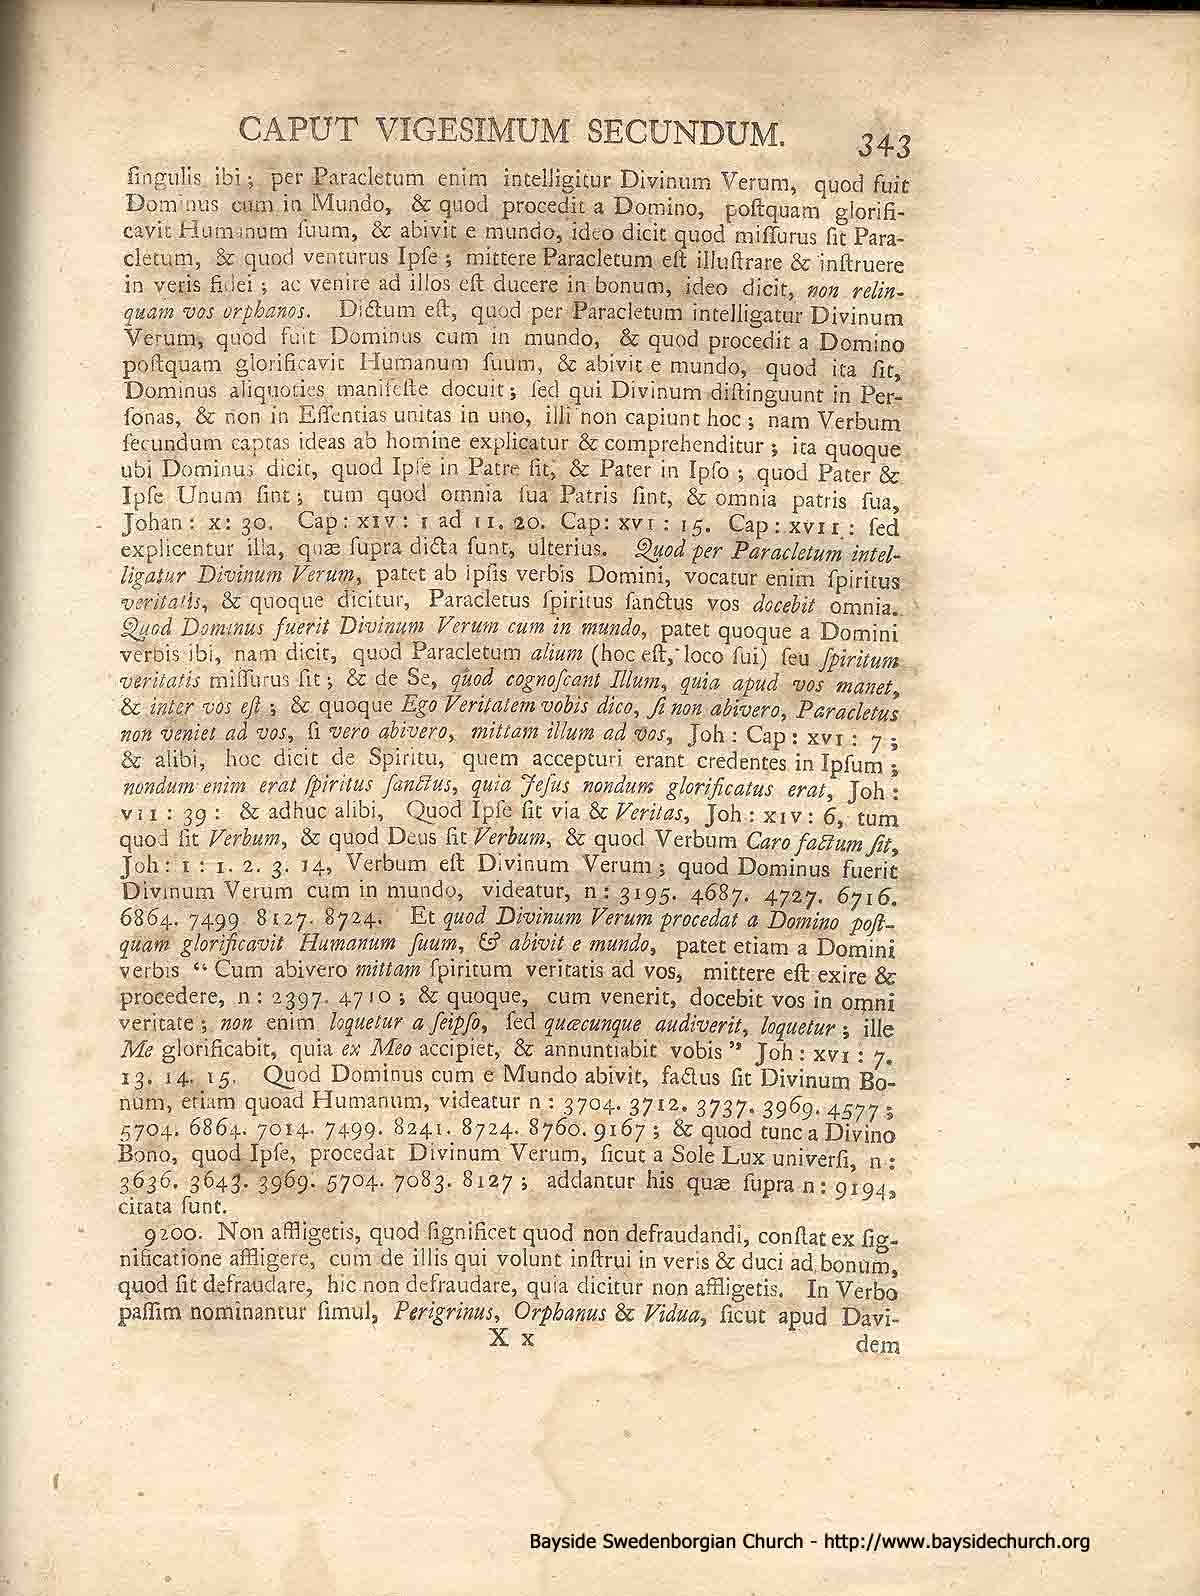 CAPUT VIGESIMUM SECUNDUM. 343
ſingulis ibi; per Paracletum enim intelligitur Divinum Verum, quod fuit
Dominus cum in Mundo, & quod procedit a Domino, poſtquam glorifi-
cavit Humanum ſuum, & abivit e mundo, ideo dicit quod miſſurus ſit Para-
cletum, & quod venturus Ipſe; mittere Paracletum eſt illuſtrare & inſtruere
in veris fidei; ac venire ad illos eſt ducere in bonum, ideo dicit, non relin-
quam vos orphanos. Dictum eſt, quod per Paracletum intelligatur Divinum
Verum, quod fuit Dominus cum in mundo, & quod procedit a Domino
poſtquam glorificavit Humanum ſuum, & abivit e mundo, quod ita ſit,
Dominus aliquoties manifeſte docuit; ſed qui Divinum diſtinguunt in Per-
ſonas, & non in Eſſentias unitas in uno, illi non capiunt hoc; nam Verbum
ſecundum captas ideas ab homine explicatur & comprehenditur; ita quoque
ubi Dominus dicit, quod Ipſe in Patre ſit, & Pater in Ipſo; quod Pater &
Ipſe Unum ſint; tum quod omnia ſua Patris ſint, & omnia patris ſua,
Johan: X: 30. Cap: XIV: 1 ad 11. 20. Cap: XVI: 15. Cap: XVII: ſed
explicentur illa, quæ ſupra dicta ſunt, ulterius. Quod per Paracletum intel-
ligatur Divinum Verum, patet ab ipſis verbis Domini, vocatur enim ſpiritus
veritatis, & quoque dicitur, Paracletus ſpiritus ſanctus vos docebit omnia.
Quod Dominus fuerit Divinum Verum cum in mundo, patet quoque a Domini
verbis ibi, nam dicit, quod Paracletum alium (hoc eſt, loco ſui) ſeu ſpiritum
veritatis miſſurus ſit; & de Se, quod cognoſcant Illum, quia apud vos manet,
& inter vos eſt; & quoque Ego Veritatem vobis dico, ſi non abivero, Paracletus
non veniet ad vos, ſi vero abivero, mittam illum ad vos, Joh: Cap: XVI: 7;
& alibi, hoc dicit de Spiritu, quem accepturi erant credentes in Ipſum;
nondum enim erat ſpiritus ſanctus, quia Jeſus nondum glorificatus erat, Joh:
VII: 39: & adhuc alibi, Quod Ipſe ſit via & Veritas, Joh: XIV: 6, tum
quod ſit Verbum, & quod Deus ſit Verbum, & quod Verbum Caro factum ſit,
Joh: I: 1. 2. 3. 14, Verbum eſt Divinum Verum; quod Dominus fuerit
Divinum Verum cum in mundo, videatur, n: 3195. 4687. 4727. 6716.
6864. 7499 8127. 8724. Et quod Divinum Verum procedat a Domino poſt-
quam glorificavit Humanum ſuum, & abivit e mundo, patet etiam a Domini
verbis “ Cum abivero mittam ſpiritum veritatis ad vos, mittere eſt exire &
procedere, n: 2397. 4710; & quoque, cum venerit, docebit vos in omni
veritate; non enim loquetur a ſeipſo, ſed quæcunque audiverit, loquetur; ille
Me glorificabit, quia ex Meo accipiet, & annuntiabit vobis ” Joh: XVI: 7.
13. 14. 15. Quod Dominus cum e Mundo abivit, factus ſit Divinum Bo-
num, etiam quoad Humanum, videatur n: 3704. 3712. 3737. 3969. 4577;
5704. 6864. 7014. 7499. 8241. 8724. 8760. 9167; & quod tunc a Divino
Bono, quod Ipſe, procedat Divinum Verum, ſicut a Sole Lux univerſi, n:
3636. 3643. 3969. 5704. 7083. 8127; addantur his quæ ſupra n: 9194,
citata ſunt.
9200. Non affligetis, quod ſignificet quod non defraudandi, conſtat ex ſig-
nificatione affligere, cum de illis qui volunt inſtrui in veris & duci ad bonum,
quod ſit defraudare, hic non defraudare, quia dicitur non affligetis. In Verbo
paſſim nominantur ſimul, Perigrinus, Orphanus & Vidua, ſicut apud Davi-
X x dem
Bayside Swedenborgian Church - http://www.baysidechurch.org